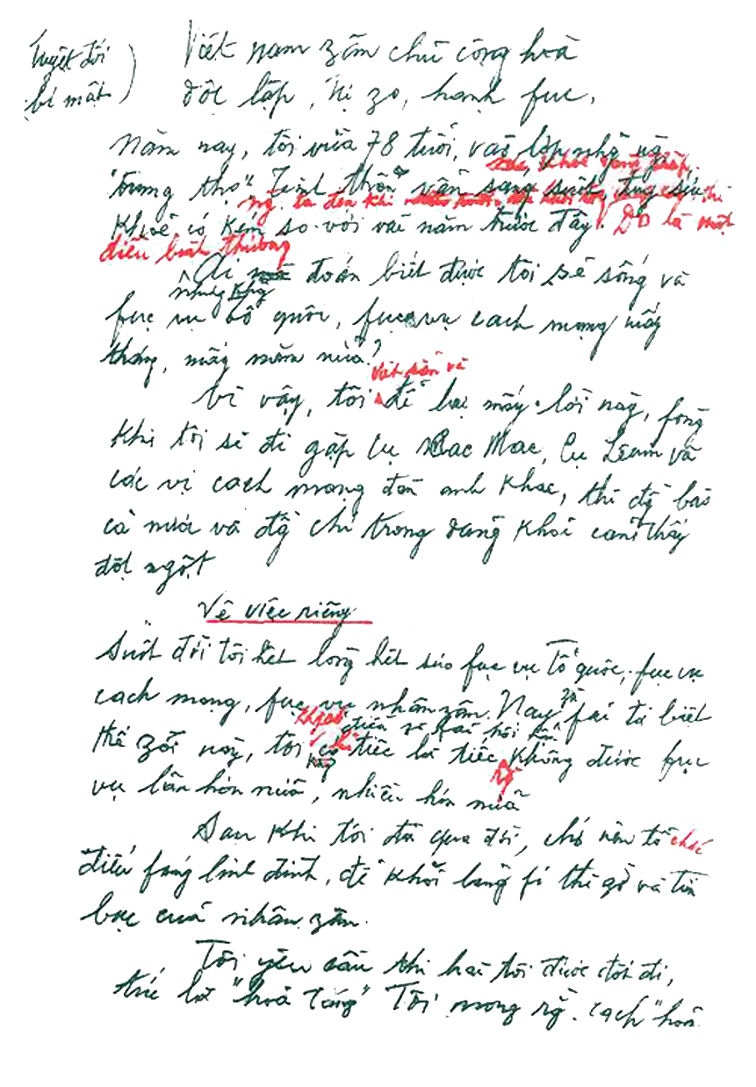 Tuyệt đối
bí mật)
Việt nam zân chủ cộng hoà
độc lập, tự zo, hạnh fuc.
Năm nay, tôi vừa 78 tuổi, vào lớp những
"trung thọ". Tinh thần vẫn sáng suốt, tuy sức
khoẻ có kém so với vài năm trước đây. Đó là một
điều bình thường
Nhưng ai đoán biết được tôi sẽ sống và
fục vụ tổ quốc, fục vụ cách mạng mấy
tháng, mấy năm nữa?
Vì vậy, tôi viết sẵn và để lại mấy lời này, fòng
khi tôi sẽ đi gặp cụ Các Mác, Cụ Lênin và
các vị cách mạng đàn anh khác, thì đồng bào
cả nước và đồng chí trong đảng khỏi cảm thấy
đột ngột
Về việc riêng
Suốt đời tôi hết lòng hết sức fục vụ Tổ quốc, fục vụ
cách mạng, fục vụ nhân zân. Nay zù fải từ biệt
thế zới này, tôi không có điều gì fải hối hận
chỉ tiếc là tiếc rằng không được fục
vụ lâu hơn nữa, nhiều hơn nữa
Sau khi tôi đã qua đời, chớ nên tổ chức
điếu fúng linh đình, để khỏi lãng fí thì giờ và tiền
bạc của nhân zân.
Tôi yêu cầu thi hài tôi được đốt đi,
tức là "hoả táng" Tôi mong rằng cách "hoả